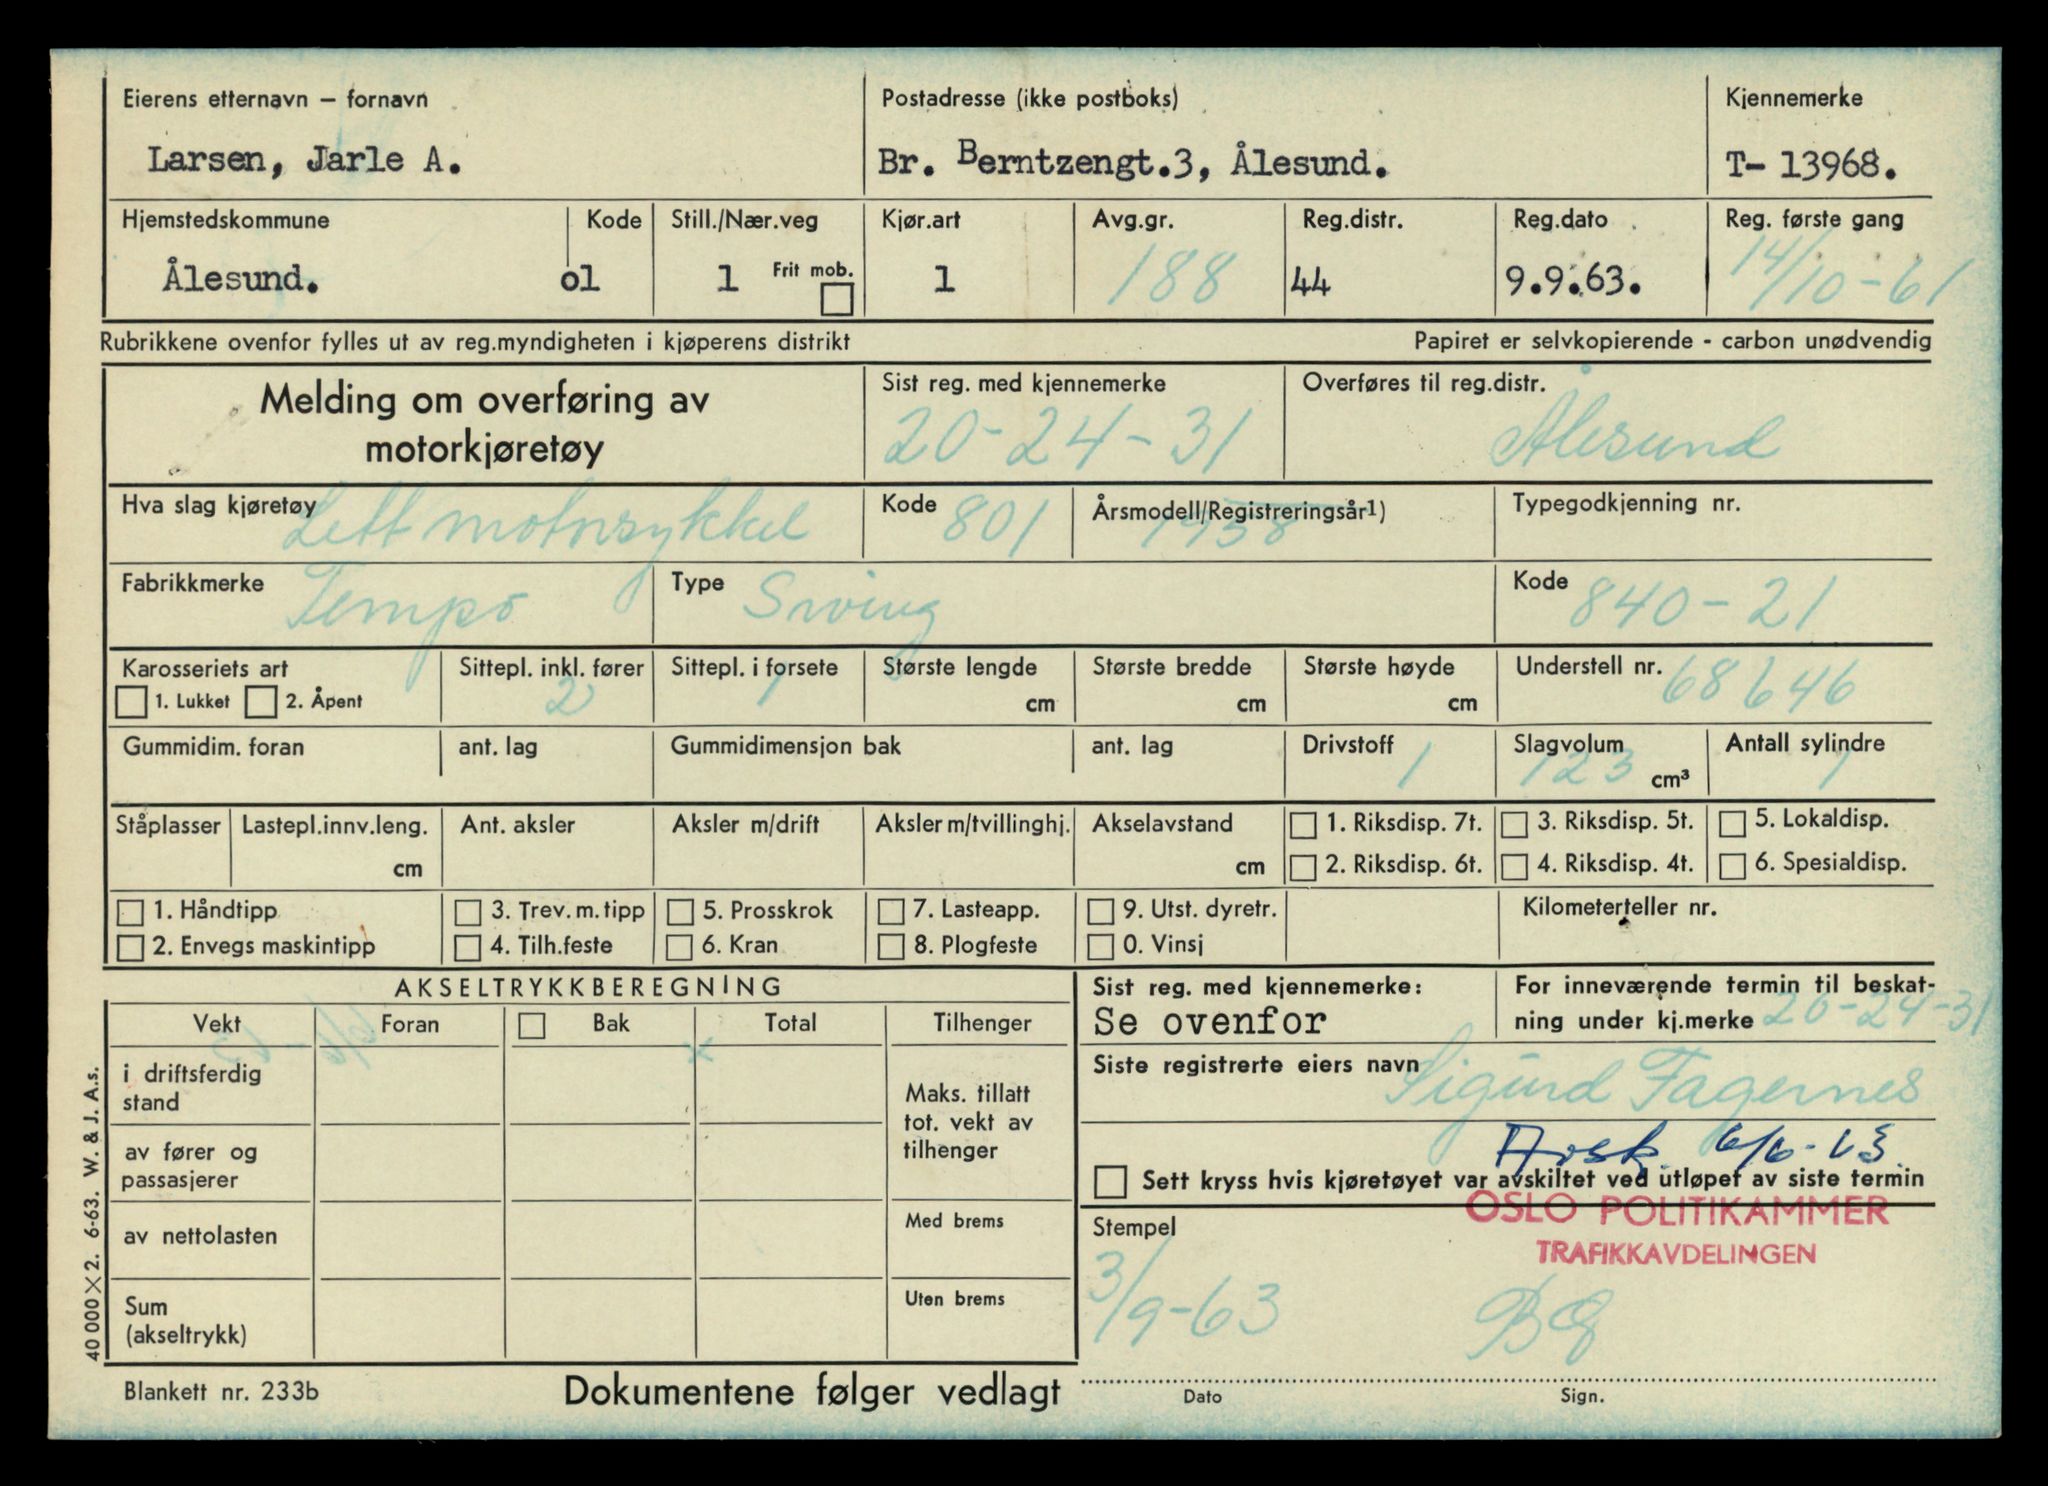 Eierens etternavn – fornavn Postadresse (ikke postboks) Kjennemerke
Larsen, Jarle A. Br. Berntzengt.3, Ålesund. T- 13968.
Hjemstedskommune Kode Still./Nær.veg Kjør.art Avg.gr. Reg.distr. Reg.dato Reg. første gang
Ålesund. o1 1 Frit mob. 1 188 44 9.9.63. 14/10-61
Rubrikkene ovenfor fylles ut av reg.myndigheten i kjøperens distrikt Papiret er selvkopierende - carbon unødvendig
Melding om overføring av
motorkjøretøy
Sist reg. med kjennemerke Overføres til reg.distr.
20-24-31 Ålesund
Hva slag kjøretøy Kode Årsmodell/Registreringsår1) Typegodkjenning nr.
Lett motorsykkel 801 1958
Fabrikkmerke Type Kode
Tempo Swing 840-21
Karosseriets art Sittepl. inkl. fører Sittepl. i forsete Største lengde Største bredde Største høyde Understell nr.
1. Lukket 2. Åpent 2 1 cm cm cm 68646
Gummidim. foran ant. lag Gummidimensjon bak ant. lag Drivstoff Slagvolum Antall sylindre
1 123 cm³ 1
Ståplasser Lastepl.innv.leng. Ant. aksler Aksler m/drift Aksler m/tvillinghj. Akselavstand 1. Riksdisp. 7t. 3. Riksdisp. 5t. 5. Lokaldisp.
cm cm 2. Riksdisp. 6t. 4. Riksdisp. 4t. 6. Spesialdisp.
1. Håndtipp 3. Trev. m. tipp 5. Prosskrok 7. Lasteapp. 9. Utst. dyretr. Kilometerteller nr.
2. Envegs maskintipp 4. Tilh.feste 6. Kran 8. Plogfeste 0. Vinsj
AKSELTRYKKBEREGNING
Vekt Foran Bak Total Tilhenger
i driftsferdig
stand
Maks. tillatt
tot. vekt av
tilhenger
av fører og
passasjerer
av nettolasten Med brems
Sum
(akseltrykk)
Uten brems
Sist reg. med kjennemerke:
Se ovenfor
For inneværende termin til beskat-
ning under kj.merke 20-24-31
Siste registrerte eiers navn Sigurd Fagernes
Avsk. 6/6-63
Sett kryss hvis kjøretøyet var avskiltet ved utløpet av siste termin
OSLO POLITIKAMMER
TRAFIKKAVDELINGEN
Stempel
3/9-63
Dato Sign.
Blankett nr. 233b Dokumentene følger vedlagt
40 000 × 2. 6-63. W. & J. A.s.